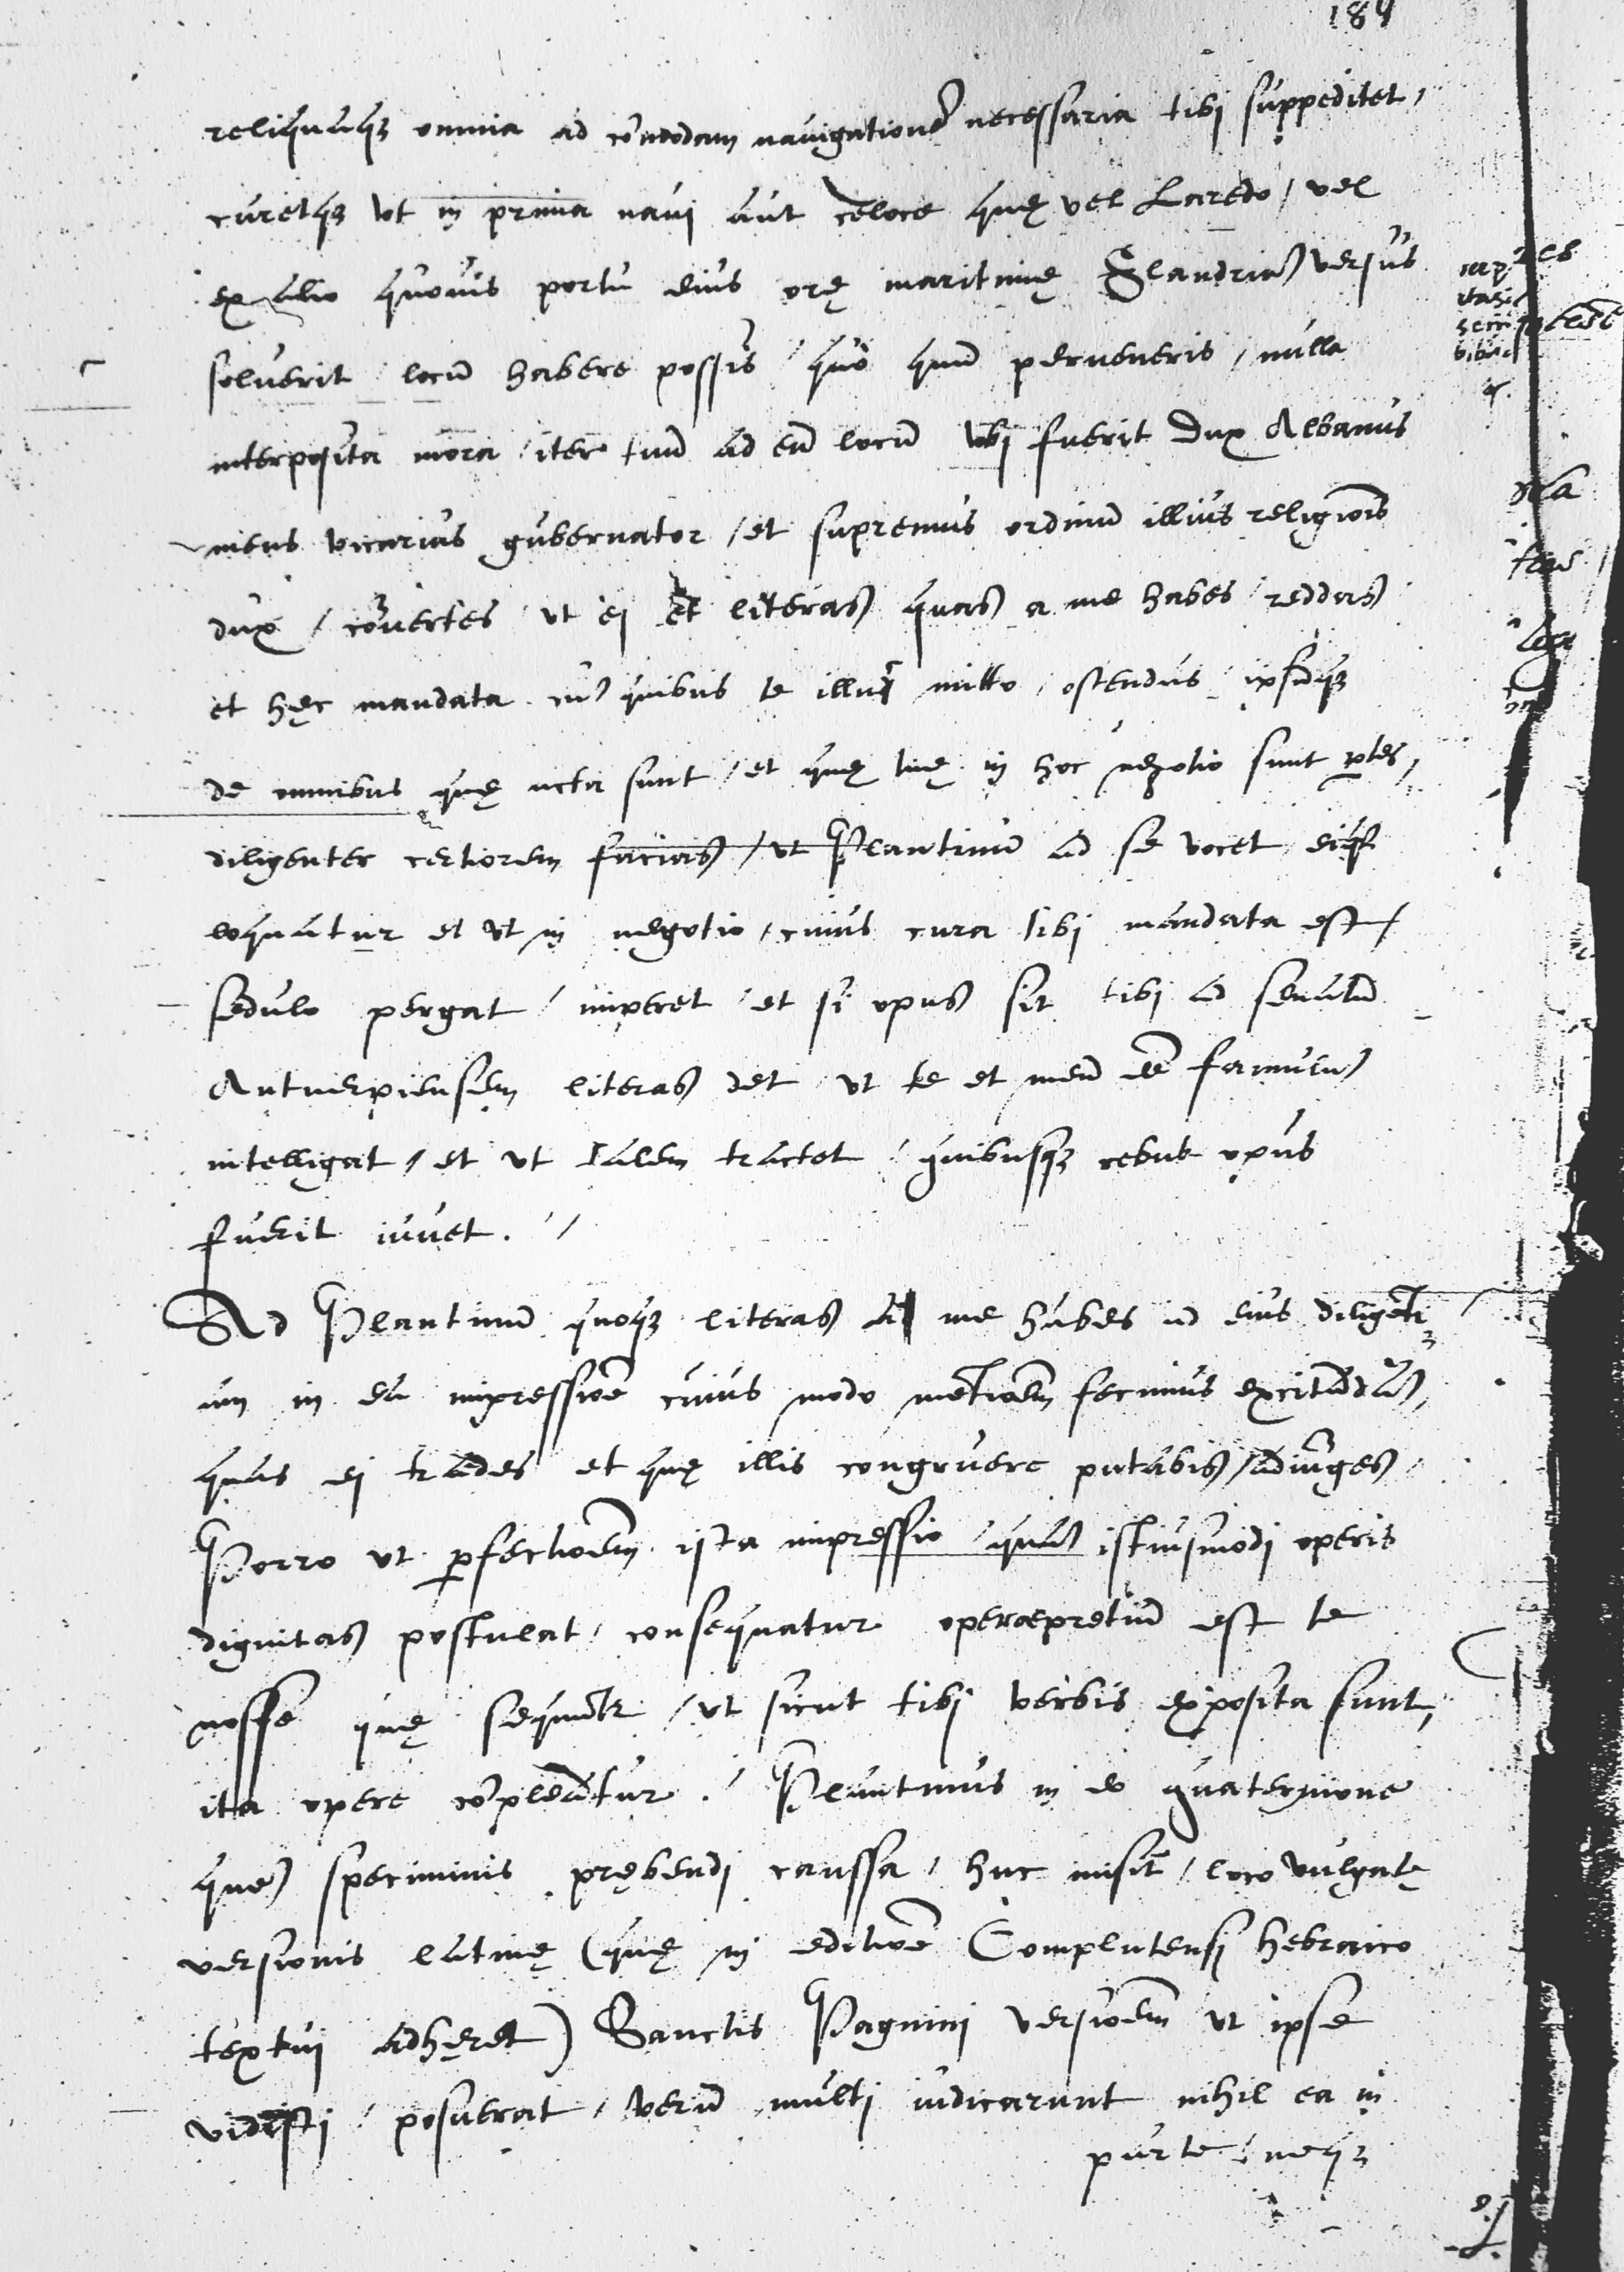 184
reliquaq₃ omnia ad cōmodam nauigationē necessaria tibj suppeditet,
curetq₃ vt in prima nauj aut celoce quę vel Laredo / vel
ex alio quouis portu eius orę maritimę Flandriā versus
soluerit / locū habere possis / quo quū perueneris / nulla
interposita mora / iter tuū ad eū locū vbj fuerit Dux Albanus
meus vicarius gubernator / et supremus ordinū illius religiōis
dux / cōuertes / ut ej et literas quas a me habes / reddas
et hęc mandata cū quibus te illuc mitto / ostendas / ipsūq₃
de omnibus quę acta sunt / et quę tuę in hoc negotio sunt ptes,
diligenter certiorem facias / ut Plantinū ad se vocet / eiq₃
loquatur et vt in negotio / cuius cura tibj mandata est /
sedulo pergat / imperet / et si opus sit tibj ad senatū
Antuerpiensem literas det / ut te et meū eē famulū
intelligat / et ut talem tractet / quibusq₃ rebus opus
fuerit iuuet. /
Ad Plantinū quoq₃ literas a me habes ad eius diligēti
am in ea impressiōe cuius modo mētiōem fecimus excitādā,
quas ej trades et quę illis congruere putabis / adiūges /
Porro ut pfectiōem ista impressio / quā istiusmodj operis
dignitas postulat / consequatur operæpretiū est te
nosse quę sequūtr / ut sicut tibj verbis exposita sunt,
ita opere cōpleātur. / Plantinus in eo quaternione
quē speciminis prębendj caussa / huc misit / loco vulgatę
versionis latinę (quę in editiōe Complutensj hebraico
textuj adhęret) Sanctis Pagninj versiōem ut ipse
vidistj / posuerat / verū multj iudicarunt nihil ea in
parte / neq₃